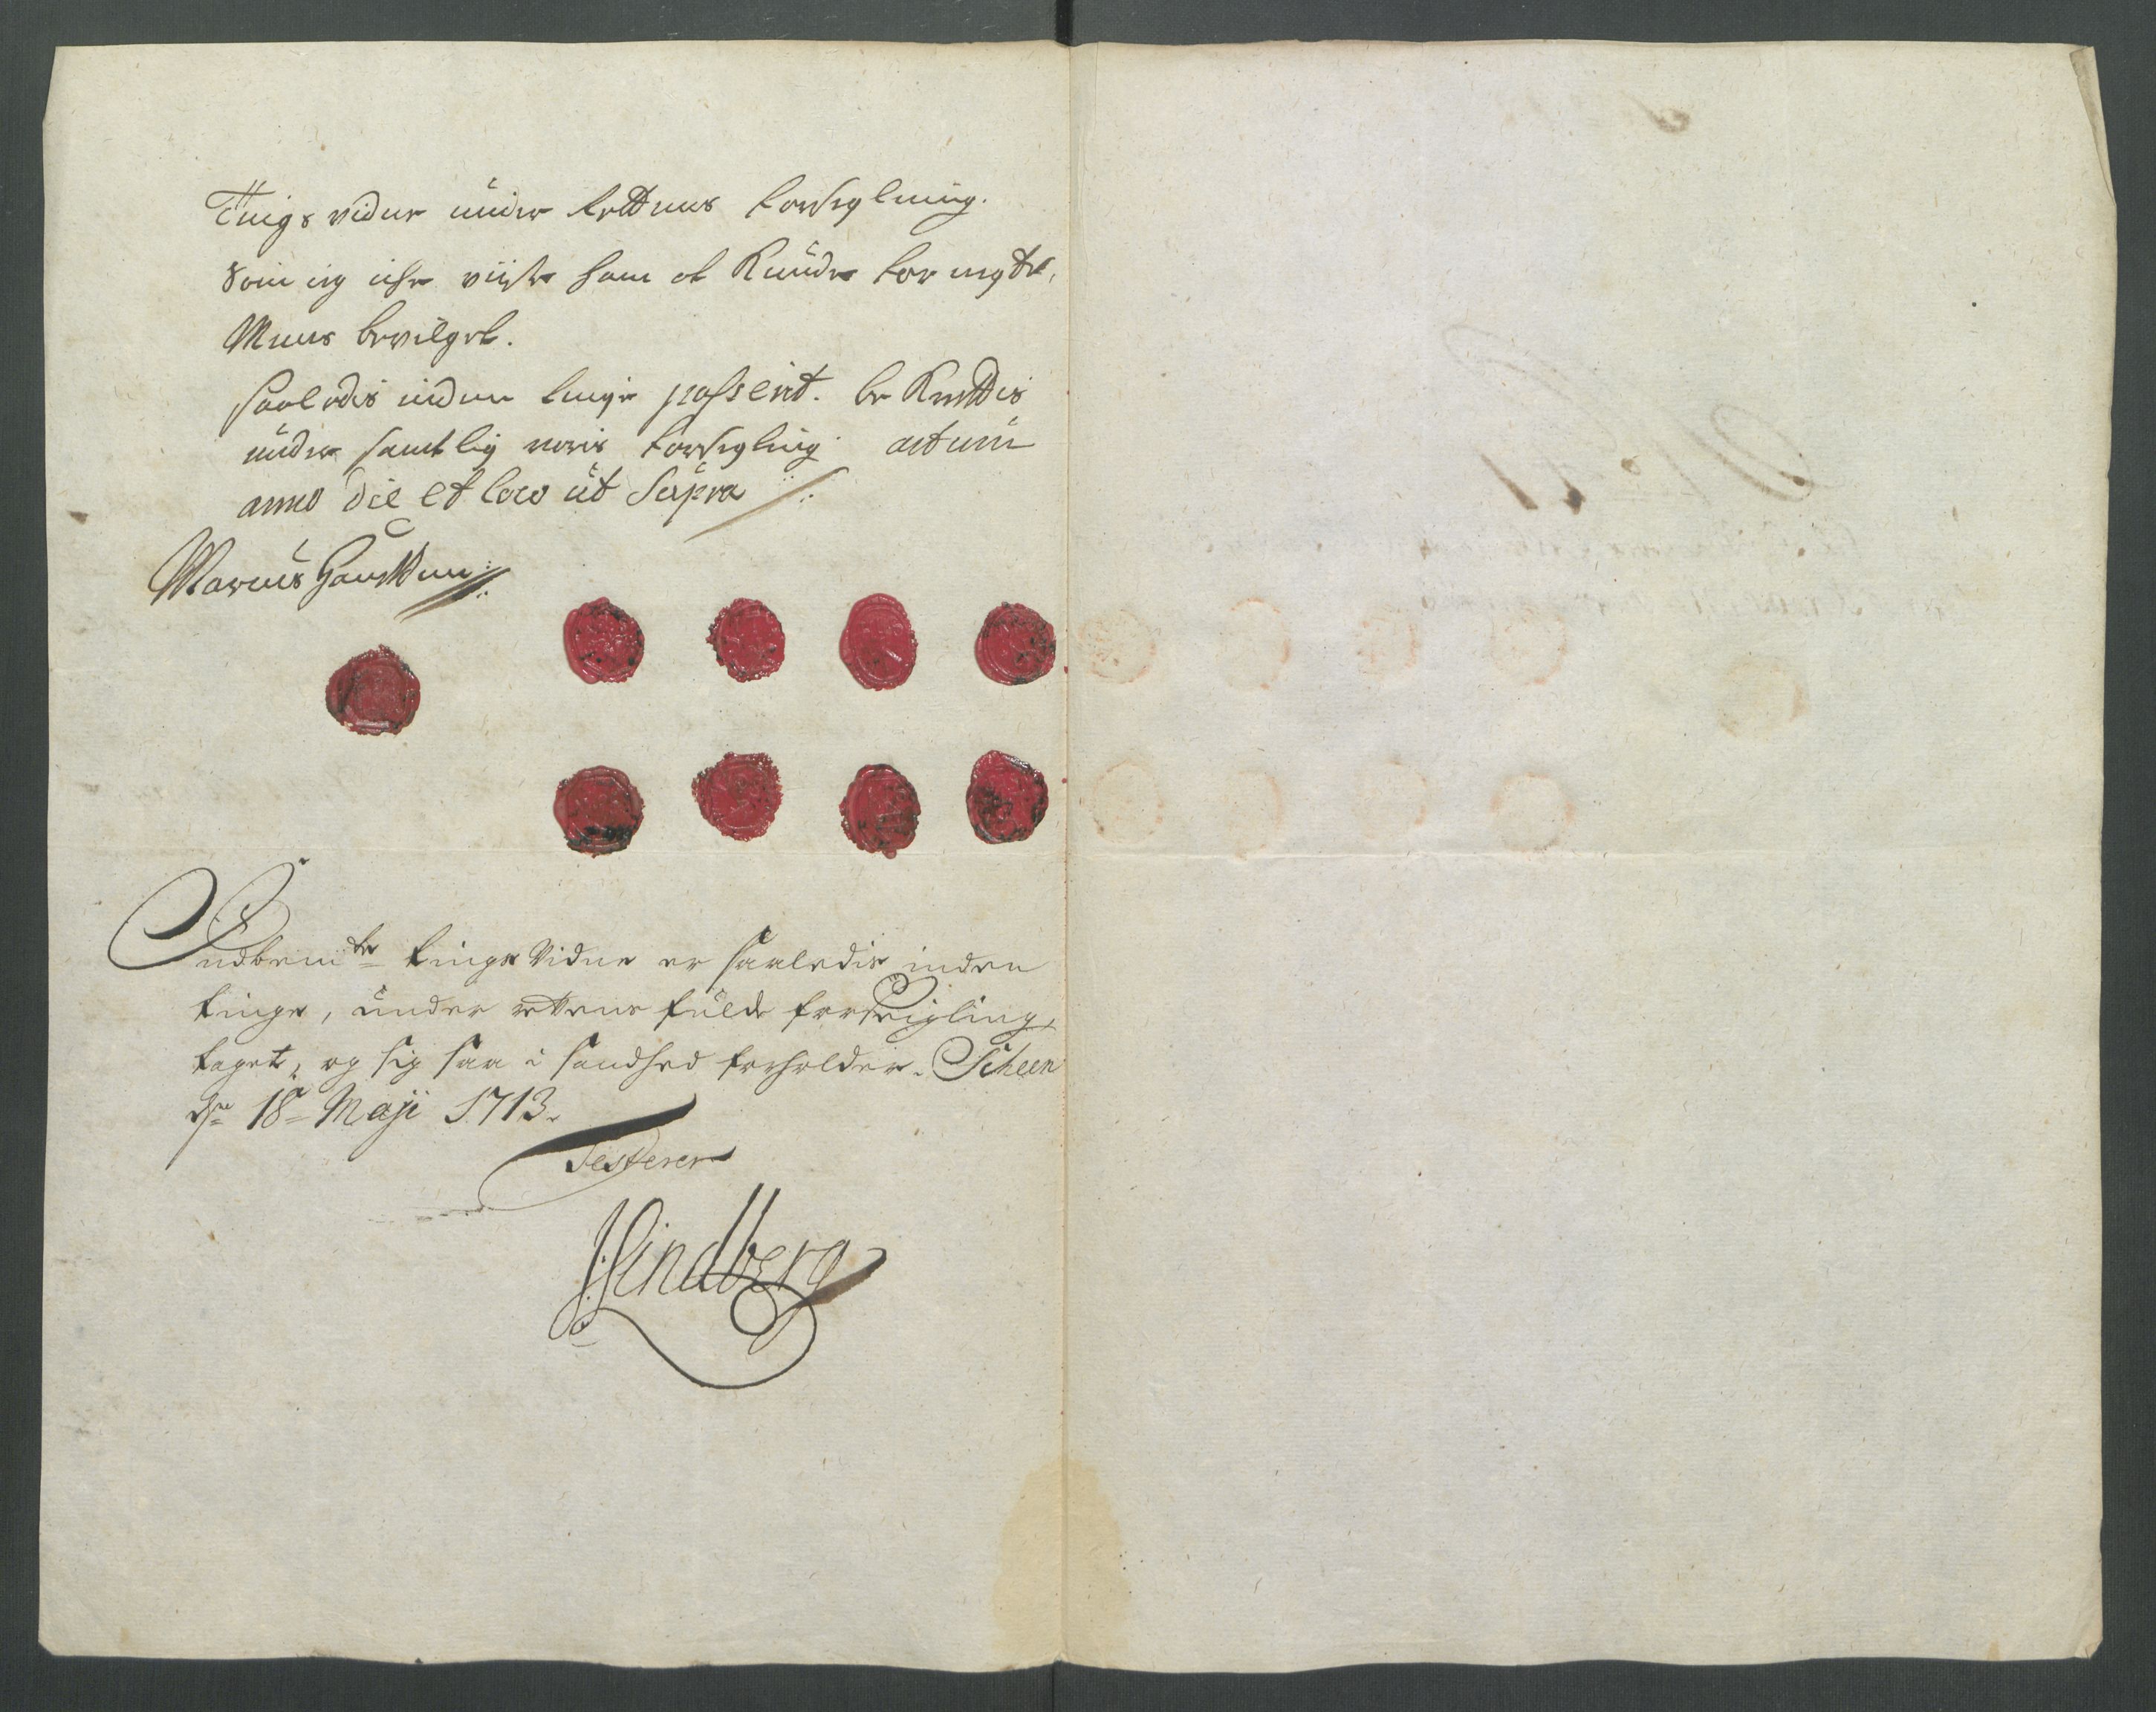 Tings vidne under Rettens forsegling.
Som ieg iche viste ham at Kunde for negte,
Mens bevilget.
saaledis inden tinge passerit. be Krefftis
under samtlig voris forsegling actum
anno die et loco ut Supra
Marcus Hansten
Indbem.te tings Vidne er saaledis inden
tinge, under rettens fulde forseigling,
taget, og sig saa i sandhed forholder. Scheen
d: 18 Maji 1713.
Testerer
J Lindberg